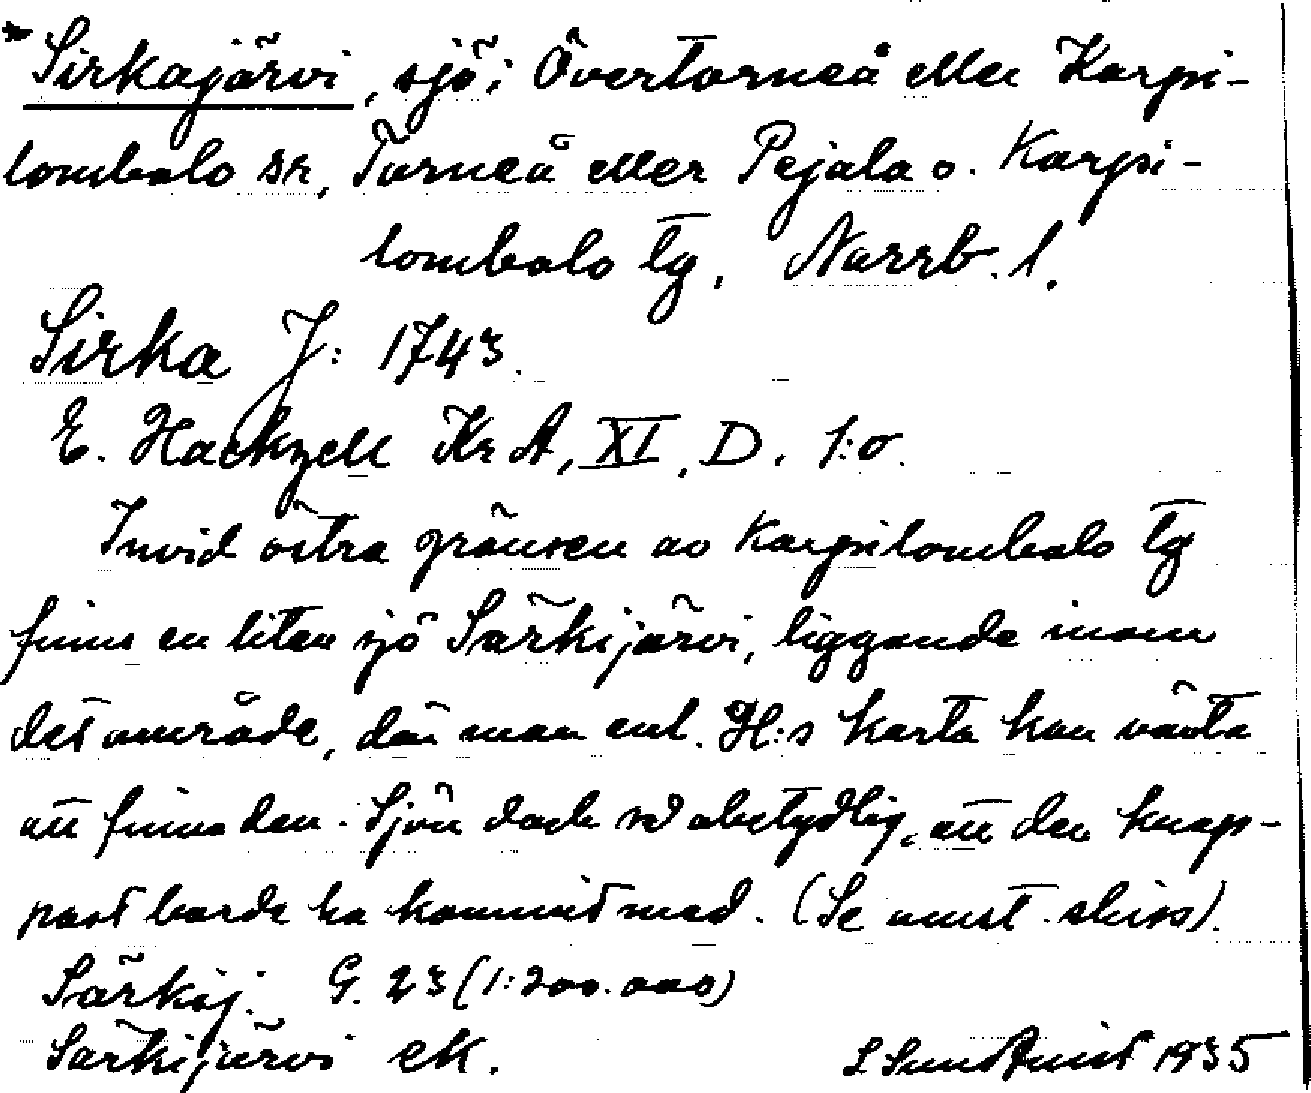 *Sirkajärvi, sjö i Övertorneå eller Karpi-
lombolo sn, Torneå eller Pejala o. Karpi-
lombolo tg, Norrb. l.
Sirka J: 1743.
E. Hackzell KrA, XI, D. 1:σ.
Invid östra gränsen av Karpilombolo tg
finns en liten sjö Särkijärvi, liggande inom
det område, där man enl. H:s karta kan vänta
att finna den. Sjön dock så obetydlig, att den knap-
past borde ha kommit med. (Se omst. skiss).
Särkij. G. 23 (1:200.000)
Särkijärvi ek. S Sundqvist 1935